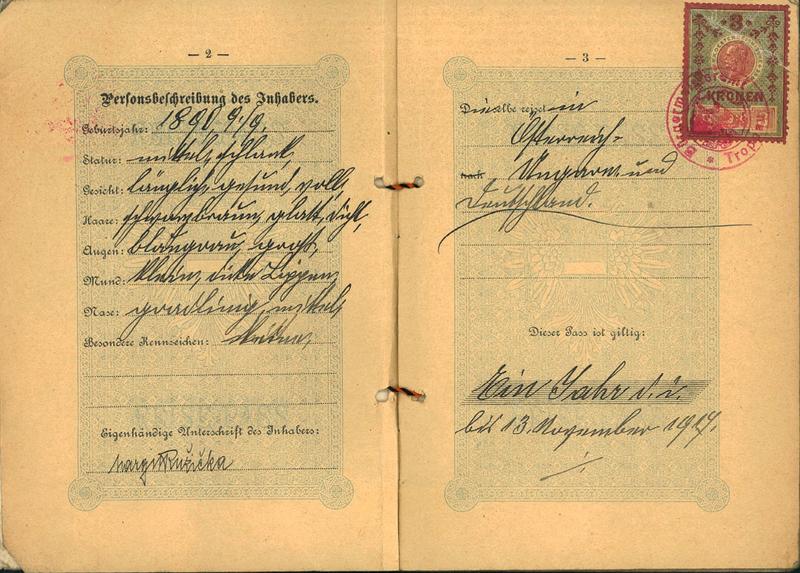 — 2 —
Personsbeschreibung des Inhabers.
Geburtsjahr: 1890, 9./9.
Statur: mittel, schlank
Gesicht: länglich, gesund, voll,
Haare: schwarzbraun, glatt, dicht,
Augen: blaugrau, groß,
Mund: klein, dicke Lippen,
Nase: gradlinig, mittel,
Besondere Kennzeichen: keine,
Eigenhändige Unterschrift des Inhabers:
Růžička
— 3 —
Dieselbe reiset in
Österreich-
nach Ungarn und
Deutschland.
Dieser Pass ist giltig:
Ein Jahr d. i.
bis 13. November 1917.
3
KRONEN